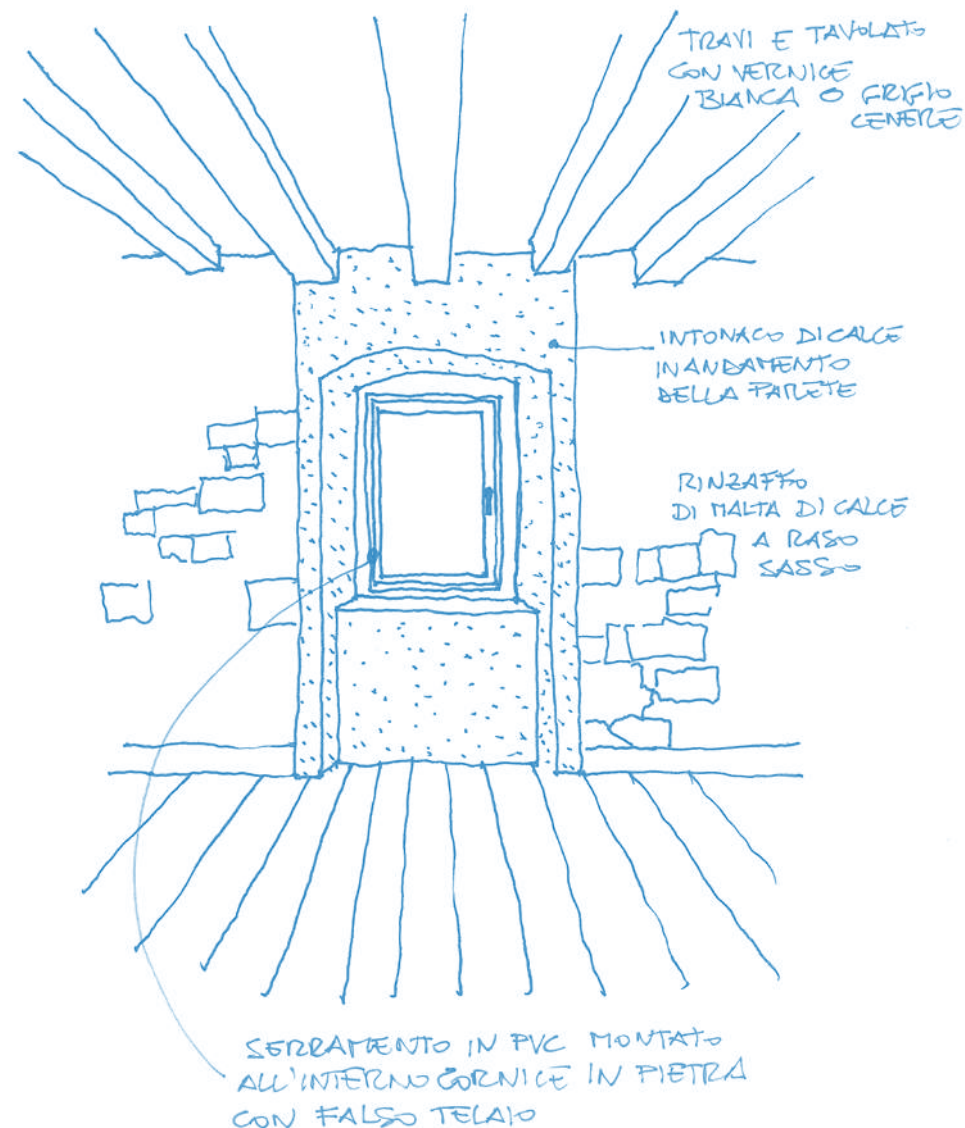 TRAVI E TAVOLATO
CON VERNICE
BIANCA O GRIGIO
CENERE
INTONACO DI CALCE
IN ANDAMENTO
DELLA PARETE
RINZAFFO
DI MALTA DI CALCE
A RASO
SASSO
SERRAMENTO IN PVC MONTATO
ALL'INTERNO CORNICE IN PIETRA
CON FALSO TELAIO